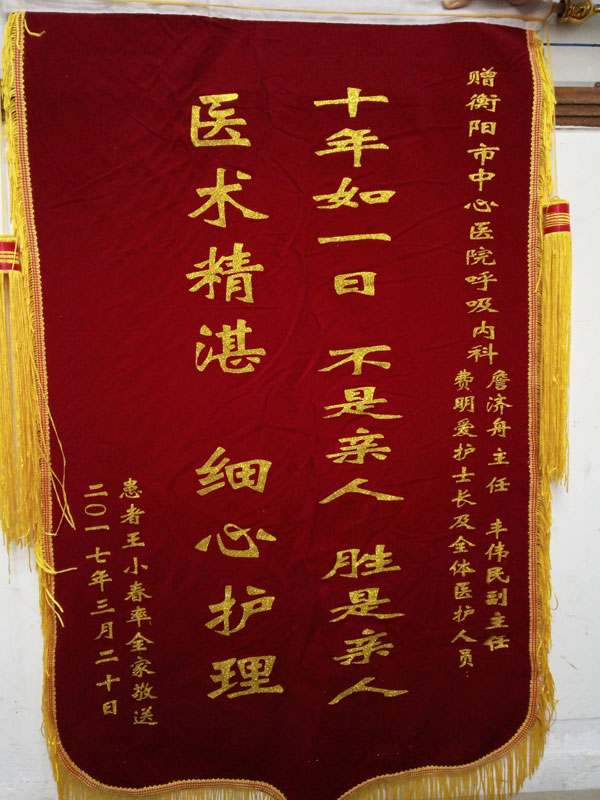 赠衡阳市中心医院呼吸内科
詹济舟主任 丰伟民副主任
费明爱护士长及全体医护人员:
十年如一日 不是亲人 胜是亲人
医术精湛 细心护理
患者王小春率全家敬送
二〇一七年三月二十日